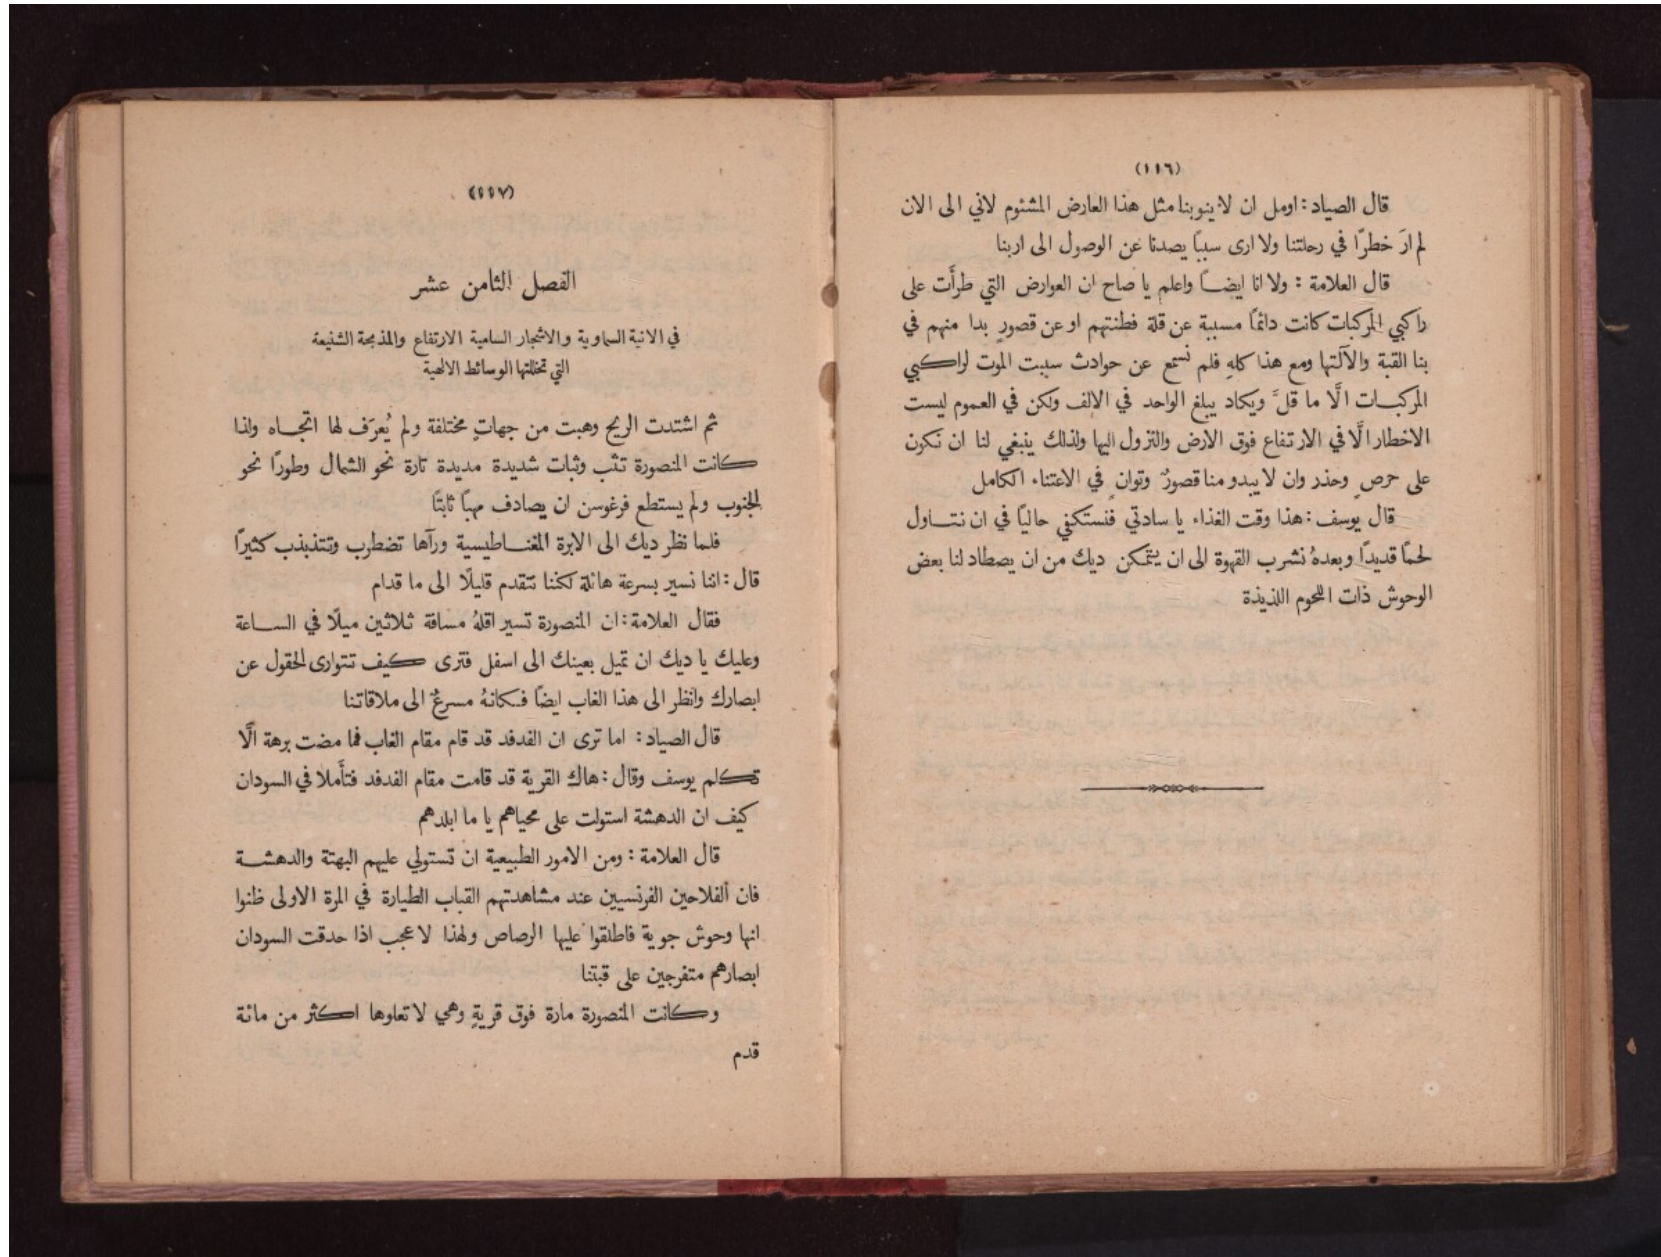 (١١٦)
قال الصياد : اومل ان لا ينوبنا مثل هذا العارض المشئوم لاني الى الان
لم ارَ خطرًا في رحلتنا ولا ارى سببًا يصدنا عن الوصول الى اربنا
قال العلامة : ولا انا ايضًا واعلم يا صاح ان العوارض التي طرأَت على
راكبي المركبات كانت دائمًا مسببة عن قلة فطنتهم او عن قصورٍ بدا منهم في
بنا القبة والآلتها ومع هذا كلهِ فلم نسمع عن حوادث سببت الموت لراكبي
المركبات الَّا ما قلَّ ويكاد يبلغ الواحد في الالف ولكن في العموم ليست
الاخطار الَّا في الارتفاع فوق الارض والنزول اليها ولذلك ينبغي لنا ان نكون
على حرصٍ وحذر وان لا يبدو منا قصورٌ وتوانٍ في الاعتناء الكامل
قال يوسف : هذا وقت الغذاء يا سادتي فنستكفي حاليًا في ان نتناول
لحمًا قديدًا وبعدهُ نشرب القهوة الى ان يتمكن ديك من ان يصطاد لنا بعض
الوحوش ذات اللحوم اللذيذة
(١١٧)
الفصل الثامن عشر
في الانية السماوية والاشجار السامية الارتفاع والمذبحة الشنيعة
التي تخللتها الوسائط الالهية
ثم اشتدت الريح وهبت من جهاتٍ مختلفة ولم يُعرَف لها اتجاه ولذا
كانت المنصورة تثب وثبات شديدة مديدة تارة نحو الشمال وطورًا نحو
الجنوب ولم يستطع فرغوسن ان يصادف مهبًا ثابتًا
فلما نظر ديك الى الابرة المغناطيسية ورآها تضطرب وتتذبذب كثيرًا
قال : اننا نسير بسرعة هائلة لكننا نتقدم قليلًا الى ما قدام
فقال العلامة : ان المنصورة تسير اقلهُ مسافة ثلاثين ميلًا في الساعة
وعليك يا ديك ان تميل بعينك الى اسفل فترى كيف تتوارى الحقول عن
ابصارك وانظر الى هذا الغاب ايضًا فكانهُ مسرعٌ الى ملاقاتنا
قال الصياد : اما ترى ان الفدفد قد قام مقام الغاب فما مضت برهة الَّا
تكلم يوسف وقال : هاك القرية قد قامت مقام الفدفد فتأَملا في السودان
كيف ان الدهشة استولت على محياهم يا ما ابلدهم
قال العلامة : ومن الامور الطبيعية ان تستولي عليهم البهتة والدهشة
فان الفلاحين الفرنسيين عند مشاهدتهم القباب الطيارة في المرة الاولى ظنوا
انها وحوش جوية فاطلقوا عليها الرصاص ولهذا لا عجب اذا حدقت السودان
ابصارهم متفرجين على قبتنا
وكانت المنصورة مارة فوق قريةٍ وهي لا تعلوها اكثر من مائة
قدم